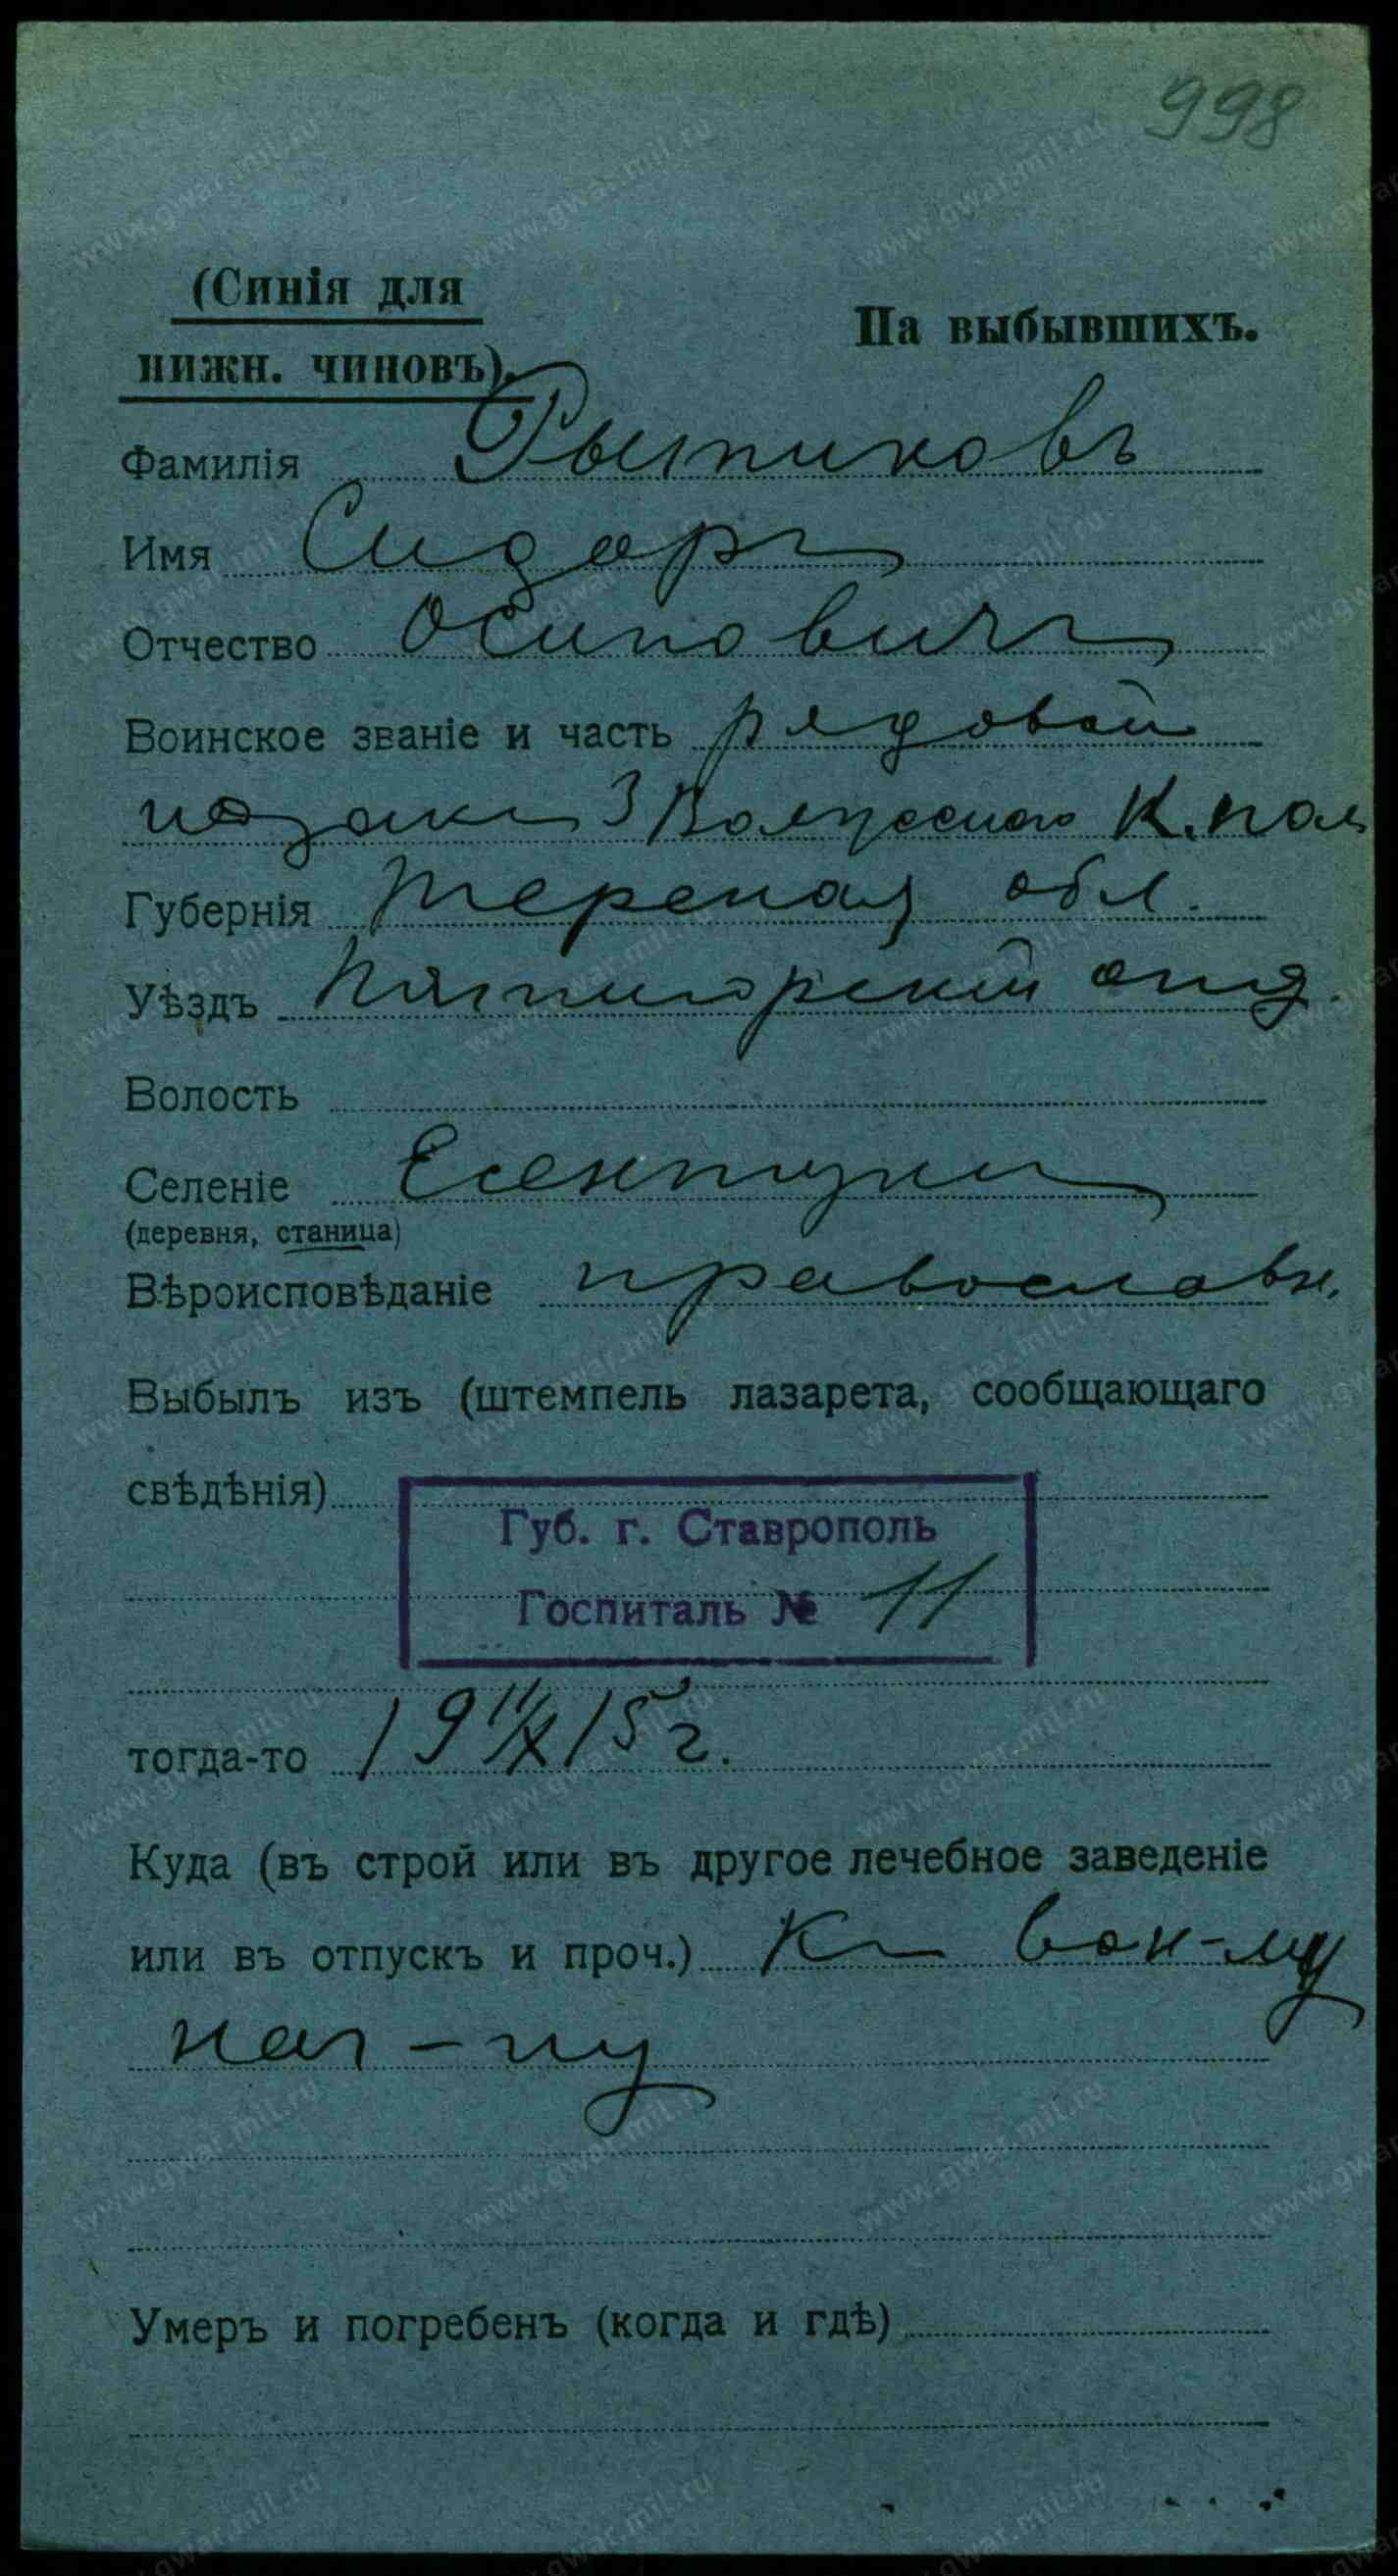 998
(Синія для
нижн. чиновъ).
На выбывшихъ.
Фамилія Рытиковъ
Имя Сидоръ
Отчество Осиповичъ
Воинское званіе и часть рядовой
козакъ 3 К. пол
Губернія Терская обл.
Уѣздъ Пятигорскій отд.
Волость
Селеніе Есентуки
(деревня, станица)
Вѣроисповѣданіе православн.
Выбылъ изъ (штемпель лазарета, сообщающаго
свѣдѣнія)
Губ. г. Ставрополь
Госпиталь № 11
тогда-то 19 11/X 15 г.
Куда (въ строй или въ другое лечебное заведеніе
или въ отпускъ и проч.) Къ вои-му
нач-ку
Умеръ и погребенъ (когда и гдѣ)